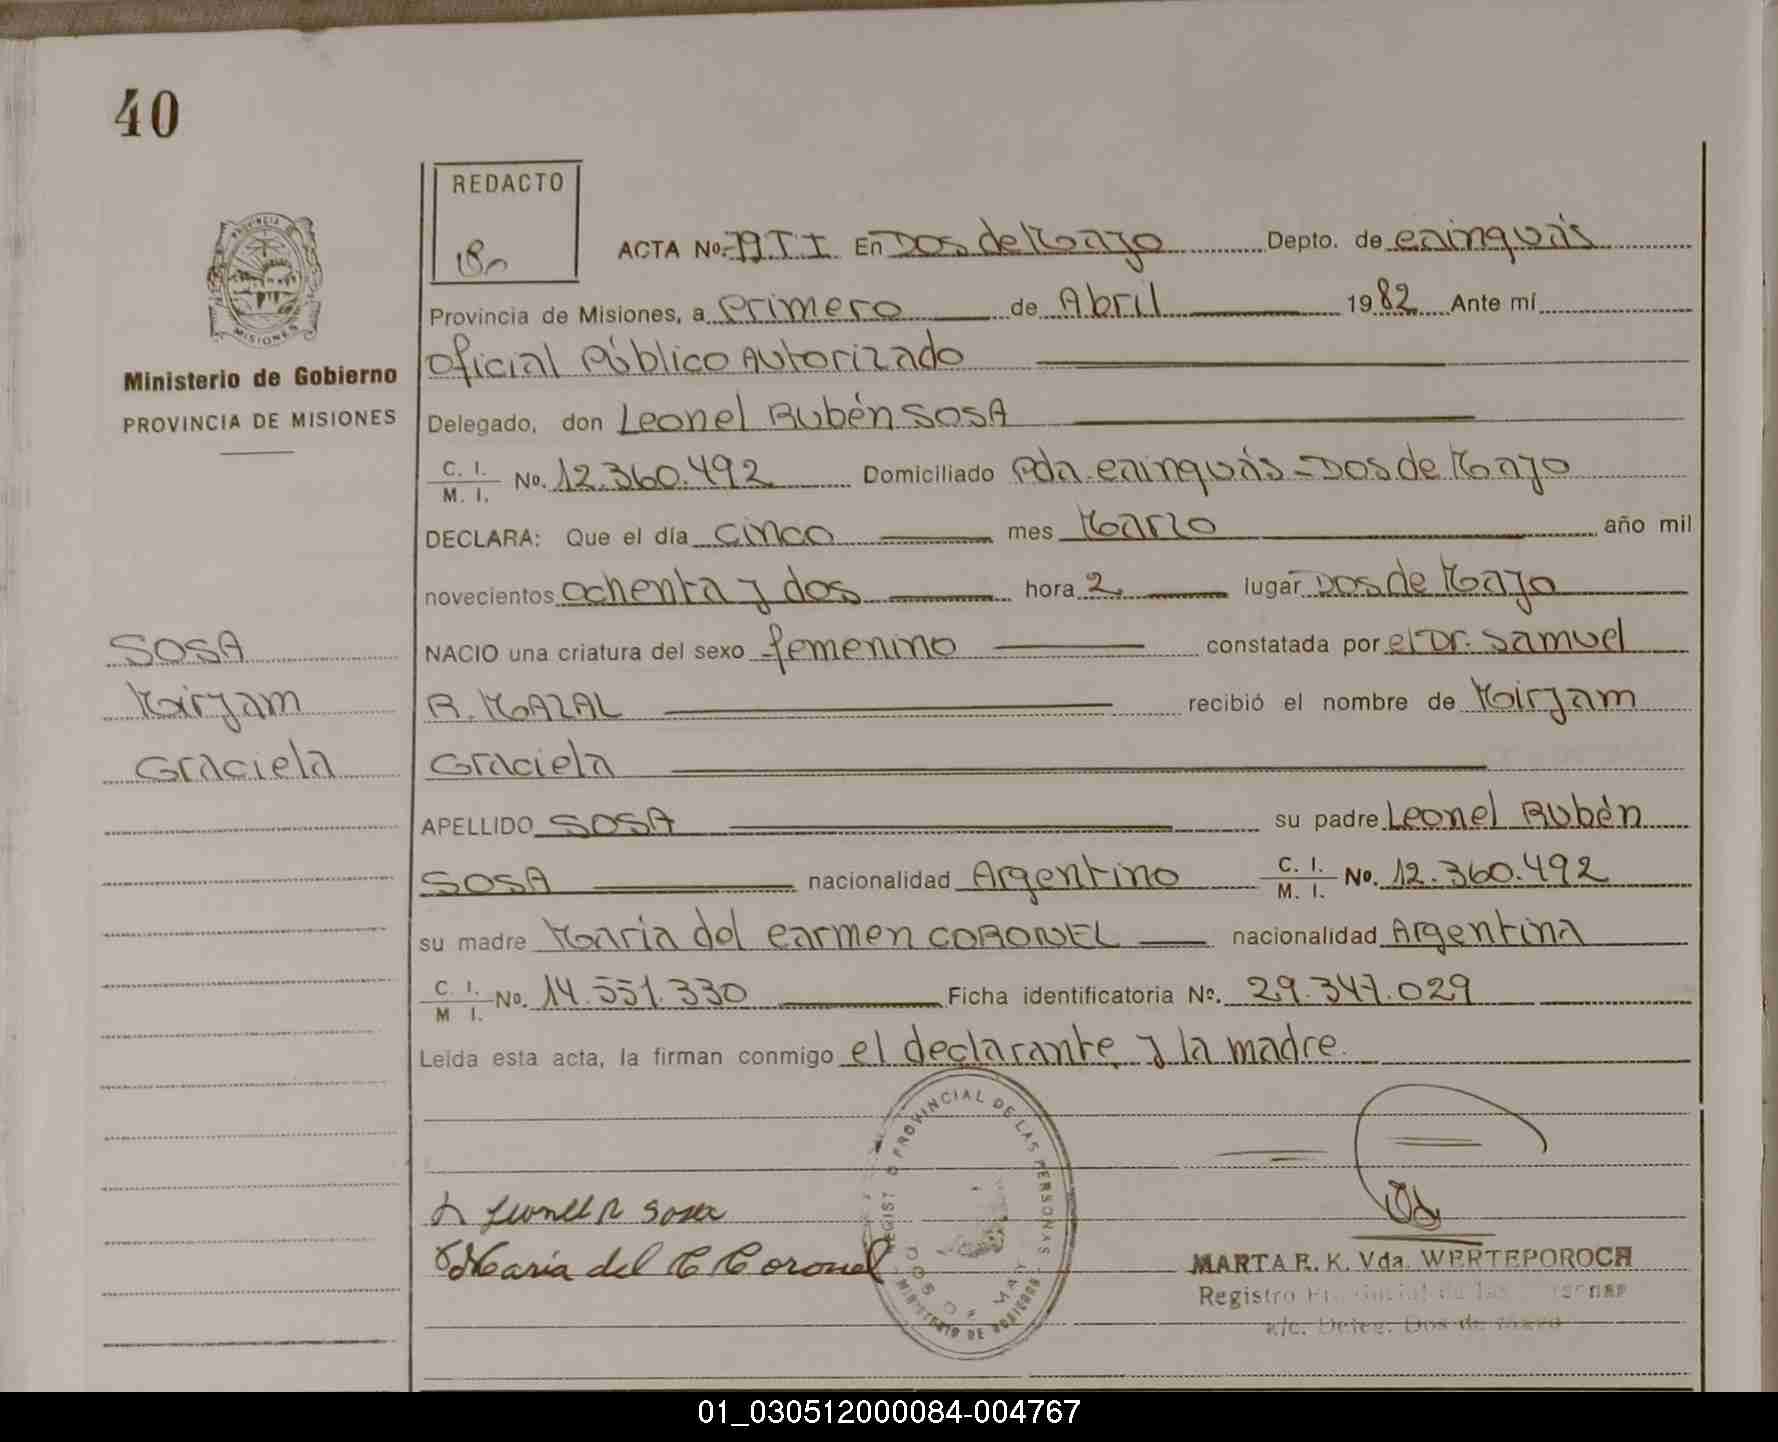 40
PROVINCIA
MISIONES
Ministerio de Gobierno
PROVINCIA DE MISIONES
REDACTO
ACTA No. 79.T I En Dos de Mayo Depto. de Cainguás
Provincia de Misiones, a Primero de Abril 1982 Ante mí
Oficial Público Autorizado
Delegado, don Leonel Rubén SOSA
C. I. / M. I. No. 12.360.492 Domiciliado Pda. Cainguás - Dos de Mayo
DECLARA: Que el día cinco mes Marzo año mil
novecientos ochenta y dos hora 2 lugar Dos de Mayo
NACIO una criatura del sexo femenino constatada por el Dr. Samuel
R. MAZAL recibió el nombre de Mirjam
Graciela
APELLIDO SOSA su padre Leonel Rubén
SOSA nacionalidad Argentino C. I. / M. I. No. 12.360.492
su madre María del Carmen CORONEL nacionalidad Argentina
C. I. / M I. No. 14.551.330 Ficha identificatoria Nº. 29.347.029
Leída esta acta, la firman conmigo el declarante y la madre.
SOSA
Mirjam
Graciela
Leonel R Sosa
Maria del C Coronel
PROVINCIAL DE LAS PERSONAS
MINISTERIO DE GOBIERNO
MARTA R. K. Vda. WERTEPOROCH
Registro Provincial de las Personas
a/c. Deleg. Dos de Mayo
01_030512000084-004767